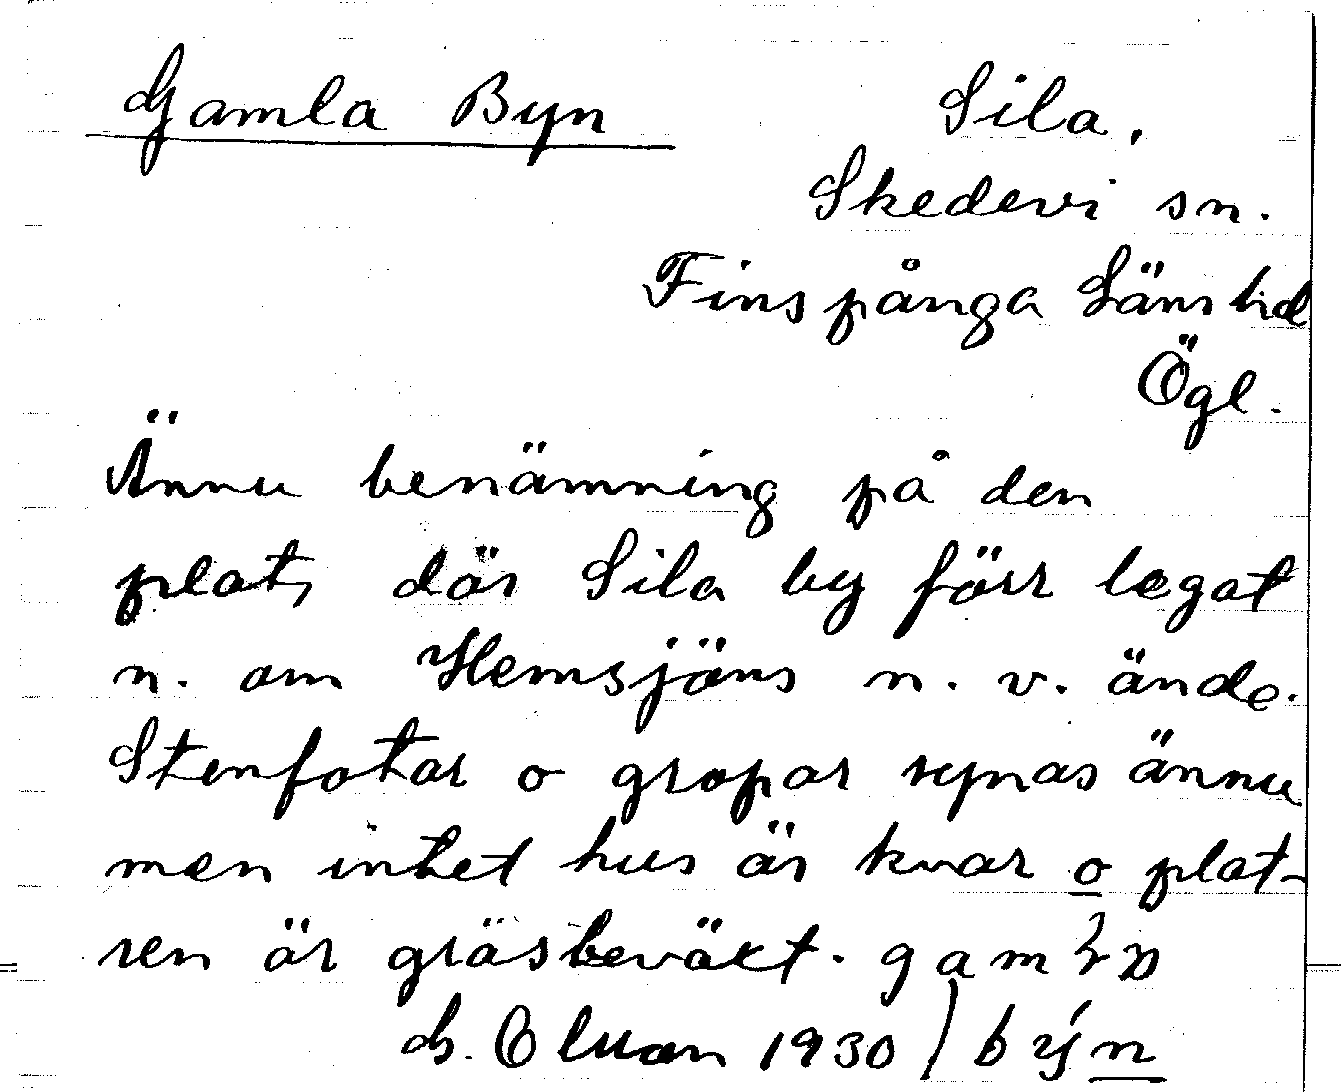 Gamla Byn Sila,
Skedevi sn.
Finspånga Läns hd
Ögl.
Ännu benämning på den
plats där Sila by förr legat
n. om Hemsjöns n. v. ände.
Stenfotar o gropar synas ännu
men intet hus är kvar o plat-
sen är gräsbeväxt. gam
1930 býn